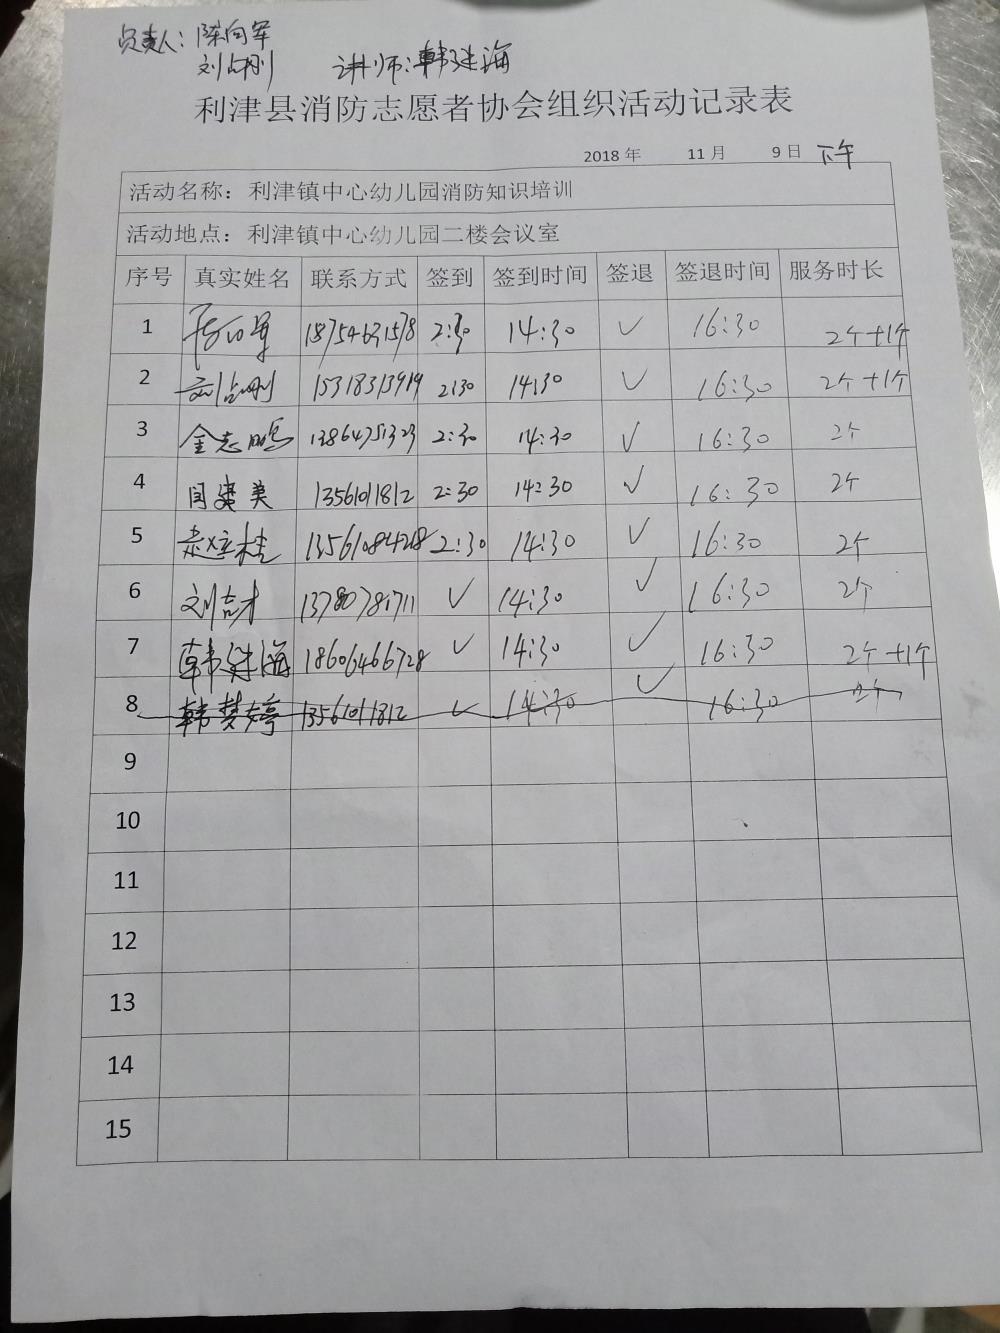 负责人：陈向军
刘占刚 讲师：韩廷海
利津县消防志愿者协会组织活动记录表
2018 年 11 月 9 日 下午
活动名称：利津镇中心幼儿园消防知识培训
活动地点：利津镇中心幼儿园二楼会议室
序号 真实姓名 联系方式 签到 签到时间 签退 签退时间 服务时长
1 陈向军 18754631578 2:30 14:30 ✓ 16:30 2个+1个
2 刘占刚 15318313919 2:30 14:30 ✓ 16:30 2个+1个
3 金志鹏 13864751323 2:30 14:30 ✓ 16:30 2个
4 美 13561011812 2:30 14:30 ✓ 16:30 2个
5 13561084218 2:30 14:30 ✓ 16:30 2个
6 刘吉才 13780781711 ✓ 14:30 ✓ 16:30 2个
7 韩廷海 18606466728 ✓ 14:30 ✓ 16:30 2个+1个
8 韩梦婷 13561011812 ✓ 14:30 ✓ 16:30 2个
9
10
11
12
13
14
15